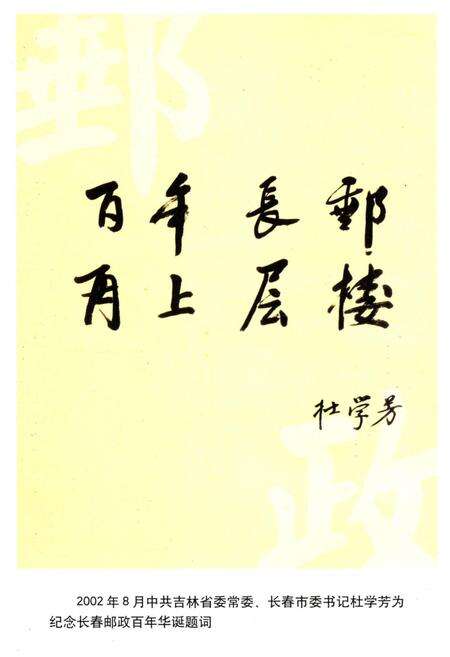 百年長郵
再上层楼
杜学芳
郵
政
2002年8月中共吉林省委常委、长春市委书记杜学芳为
纪念长春邮政百年华诞题词